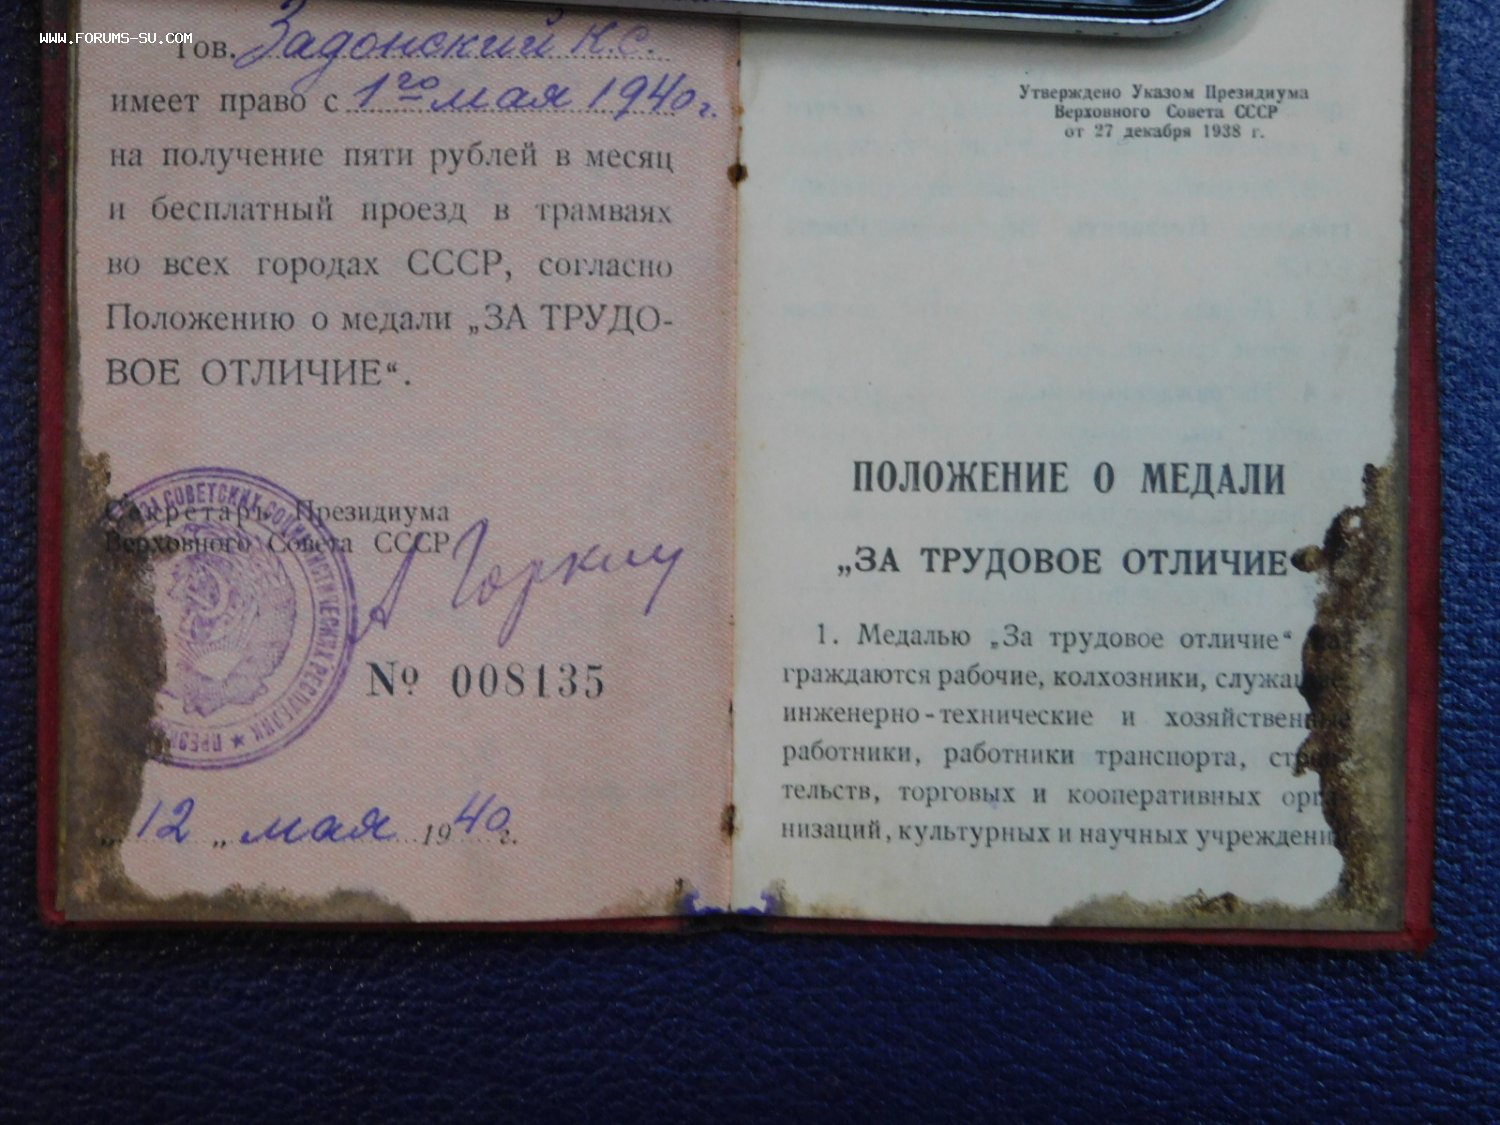 WWW.FORUMS-SU.COM
Тов. Задонский Н.С.
имеет право с 1го мая 1940 г.
на получение пяти рублей в месяц
и бесплатный проезд в трамваях
во всех городах СССР, согласно
Положению о медали „ЗА ТРУДО-
ВОЕ ОТЛИЧИЕ“.
СОВЕТСКИХ СОЦИАЛИСТИЧЕСКИХ РЕСПУБЛИК ★
Секретарь Президиума
Верховного Совета СССР
А Горкин
№ 008135
„12„ мая 1940 г.
Утверждено Указом Президиума
Верховного Совета СССР
от 27 декабря 1938 г.
ПОЛОЖЕНИЕ О МЕДАЛИ
„ЗА ТРУДОВОЕ ОТЛИЧИЕ
1. Медалью „За трудовое отличие“ на
граждаются рабочие, колхозники, служащие,
инженерно-технические и хозяйственные
работники, работники транспорта, строи-
тельств, торговых и кооперативных орга-
низаций, культурных и научных учреждений